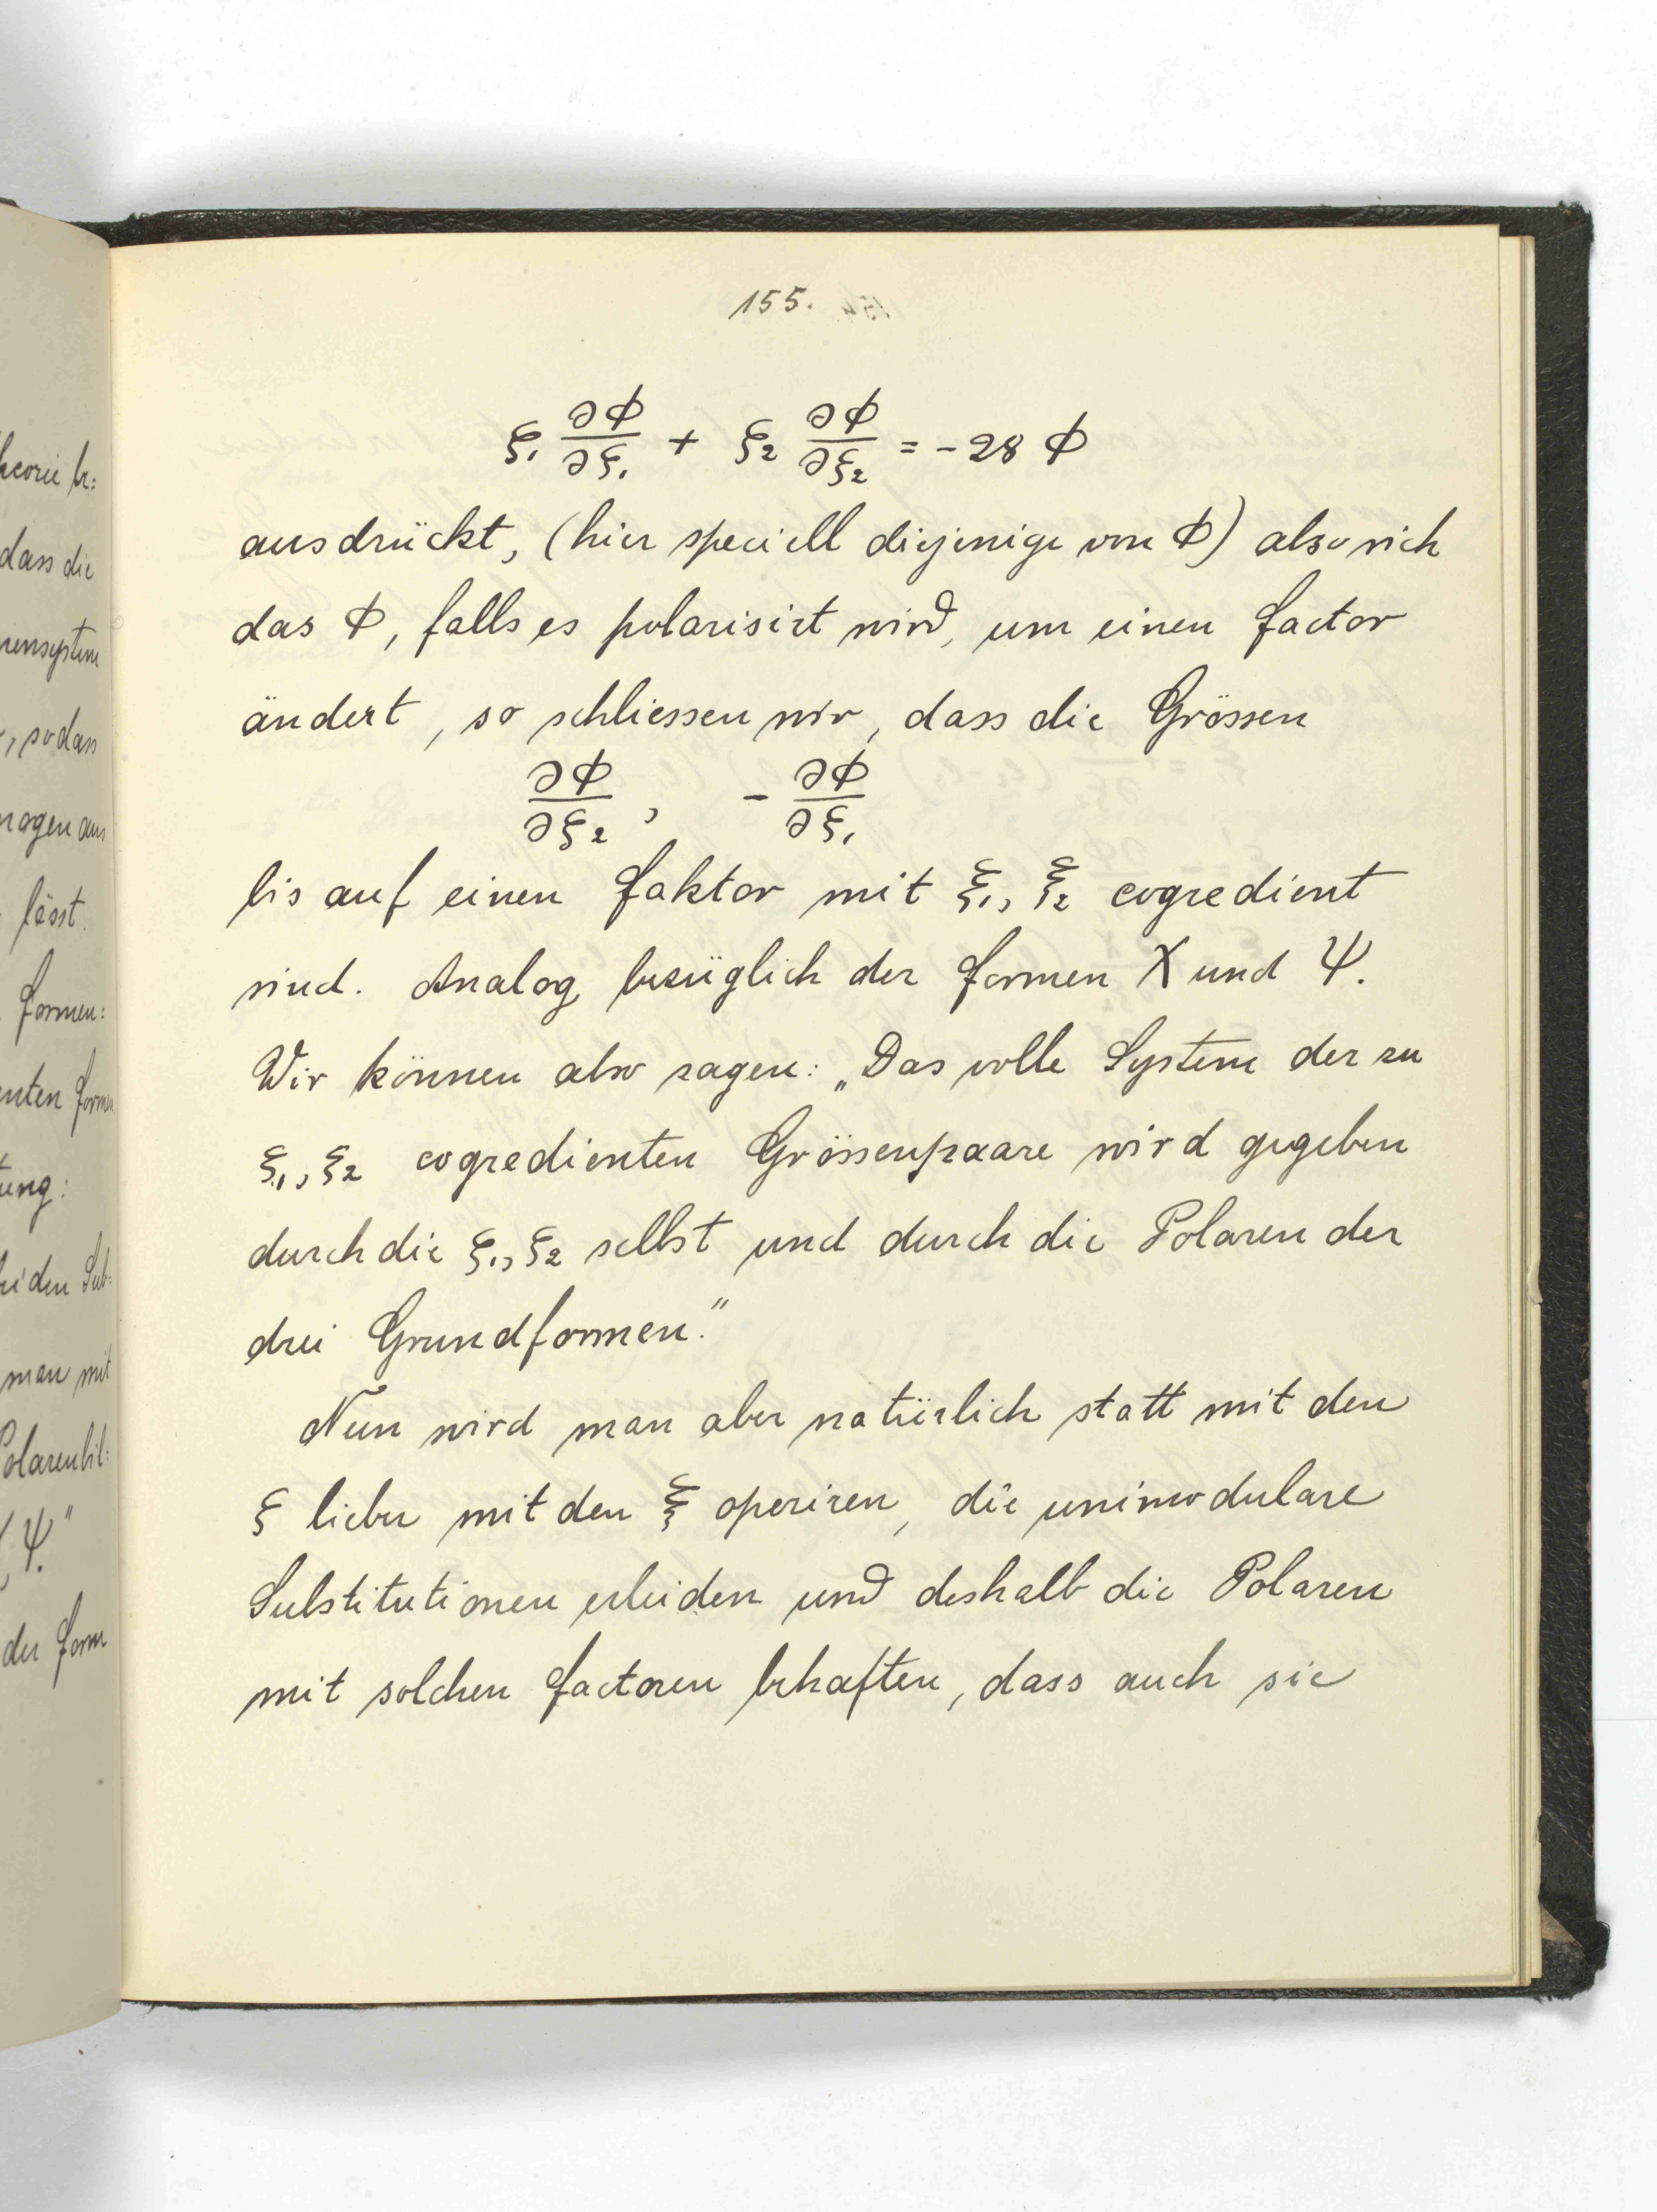 155.
ξ₁ ∂Φ/∂ξ₁ + ξ₂ ∂Φ/∂ξ₂ = -28 Φ
ausdrückt, (hier speciell diejenige von Φ) also sich
das Φ, falls es polarisirt wird, um einen Factor
ändert, so schliessen wir, dass die Grössen
∂Φ/∂ξ₂, - ∂Φ/∂ξ₁
bis auf einen Faktor mit Ξ₁, Ξ₂ cogredient
sind. Analog bezüglich der Formen X und Ψ.
Wir können also sagen: „Das volle System der zu
ξ₁, ξ₂ cogredienten Grössenpaare wird gegeben
durch die ξ₁, ξ₂ selbst und durch die Polaren der
drei Grundformen."
Nun wird man aber natürlich statt mit den
ξ lieber mit den Ξ operiren, die unimodulare
Substitutionen erleiden und deshalb die Polaren
mit solchen Factoren behaften, dass auch sie
heorie be:
dass die
rensystem
, sodass
lässt.
Formen:
enten Formen
tung:
bei den Sub:
man mit
Polarenbil:
, Ψ."
der Form